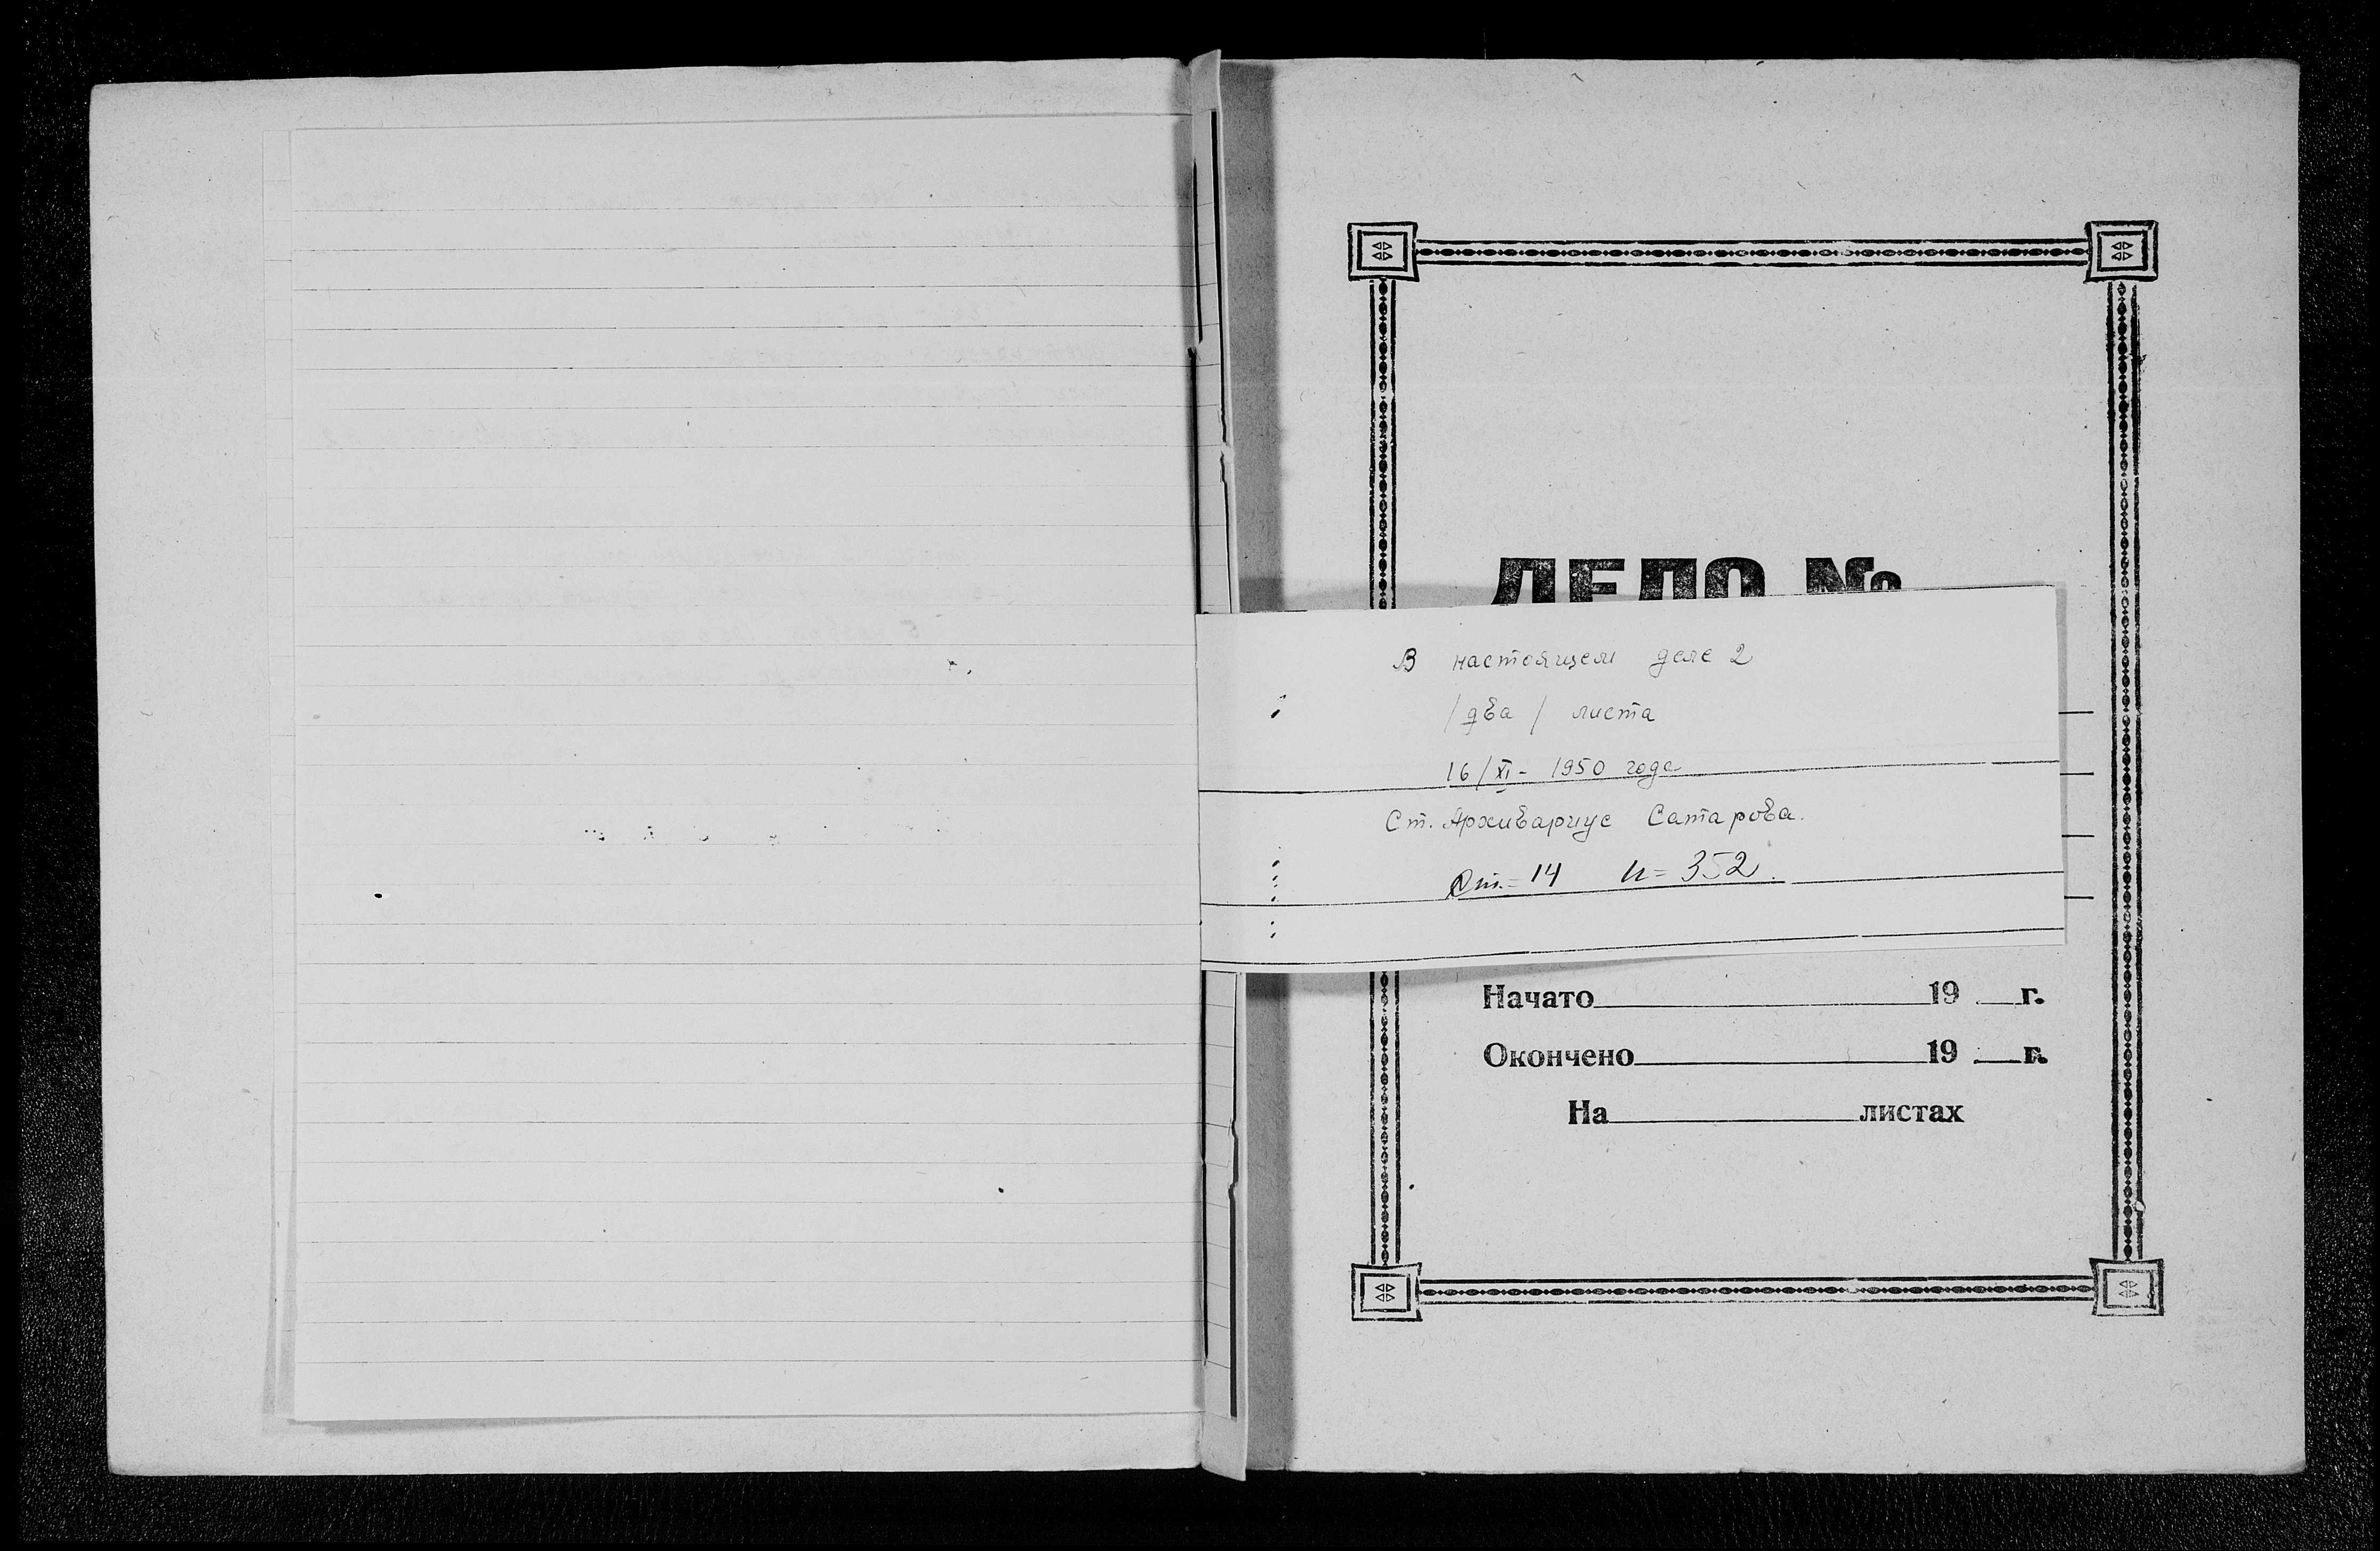 ДЕЛО №
В настоящем деле 2
/два/ листа
16/XI- 1950 года
Ст. Архивариус Сатарова.
Ст.= 14 и= 352.
Начато 19 г.
Окончено 19 г.
На листах